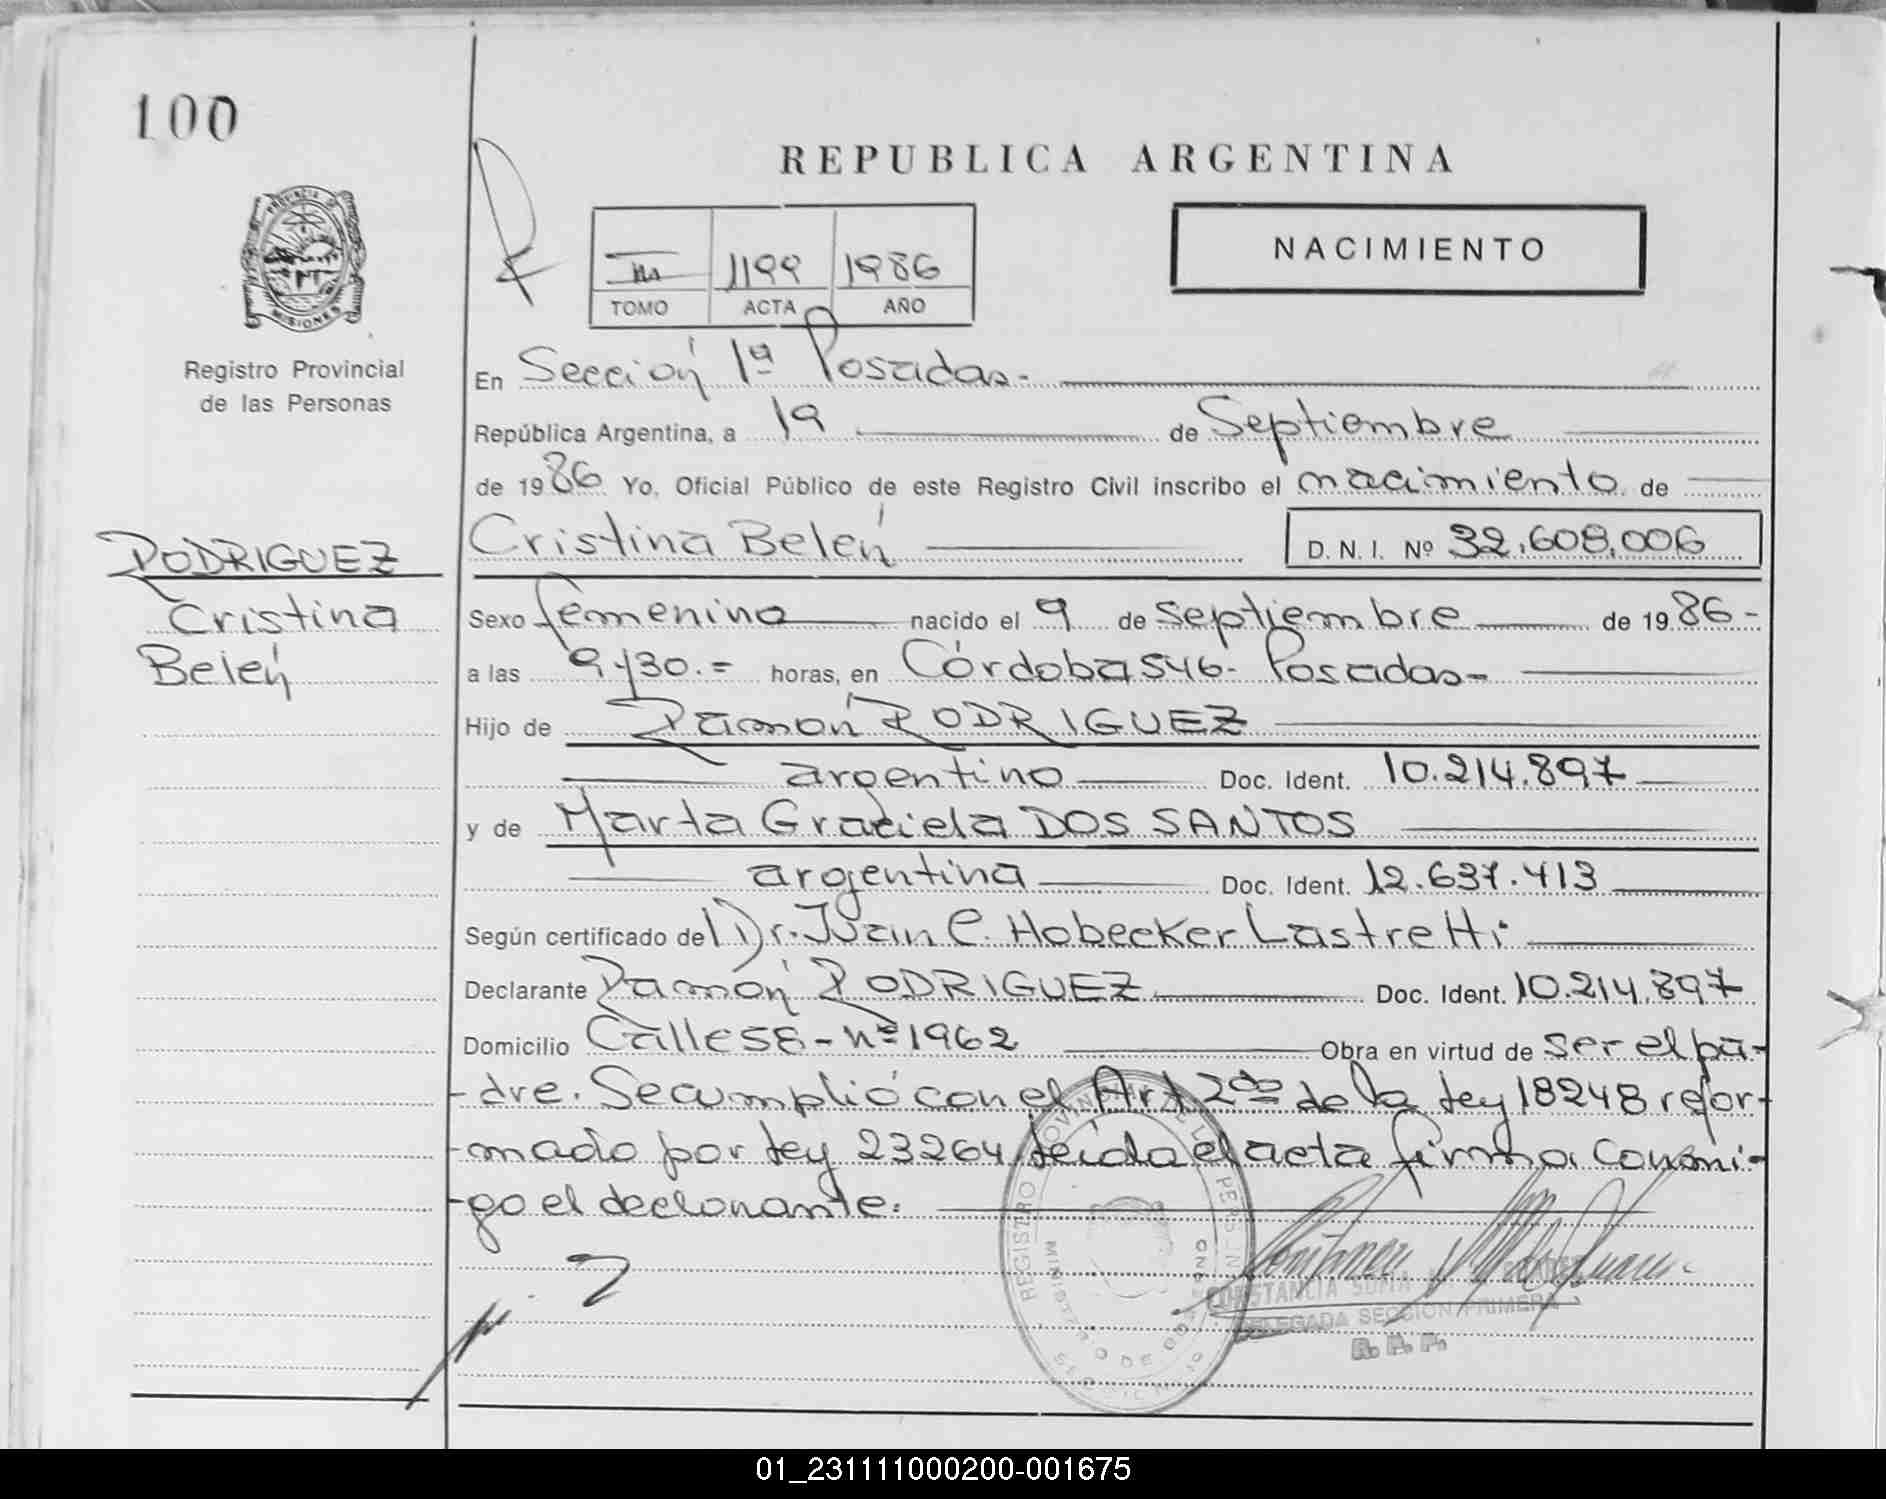 100
REPUBLICA ARGENTINA
PROVINCIA DE
MISIONES
NACIMIENTO
III 1199 1986
TOMO ACTA AÑO
Registro Provincial
de las Personas
En Sección 1ª Posadas.-
República Argentina, a 19 de Septiembre
de 1986 Yo, Oficial Público de este Registro Civil inscribo el nacimiento de
Cristina Belén D.N.I. Nº 32.608.006
RODRIGUEZ
Cristina
Belén
Sexo femenino nacido el 9 de septiembre de 1986-
a las 9y30.= horas, en Córdoba 546- Posadas-
Hijo de Ramón RODRIGUEZ
argentino Doc. Ident. 10.214.897
y de Marta Graciela DOS SANTOS
argentina Doc. Ident. 12.637.413
Según certificado del Dr. Juan C. Hobecker Lastretti
Declarante Ramón RODRIGUEZ Doc. Ident. 10.214.897
Domicilio Calle 58 - nº 1962 Obra en virtud de ser el pa-
-dre. Se cumplió con el Art 2do de la ley 18248 refor-
-mado por ley 23264 leída el acta firma conmi-
-go el declarante.
REGISTRO PROVINCIAL DE LAS PERSONAS
CONSTANCIA SONIA
DELEGADA SECCION PRIMERA
R. P. P.
01_231111000200-001675